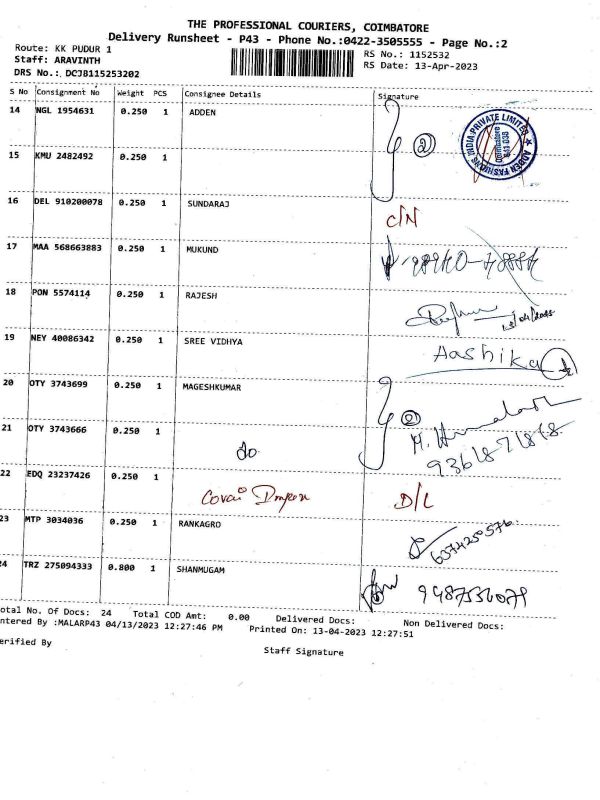 THE PROFESSIONAL COURIERS, COIMBATORE
Delivery Runsheet - P43 - Phone No.:0422-3505555 - Page No.:2
Route: KK PUDUR 1
RS No.: 1152532
Staff: ARAVINTH
RS Date: 13-Apr-2023
DRS No.: DCJ8115253202
S No Consignment No Weight PCS Consignee Details Signature
14 NGL 1954631 0.250 1 ADDEN
2
ADDEN FASHIONS INDIA PRIVATE LIMITED
Coimbatore
641 038
15 KMU 2482492 0.250 1
16 DEL 910200078 0.250 1 SUNDARAJ C/N
17 MAA 568663883 0.250 1 MUKUND
18 PON 5574114 0.250 1 RAJESH
19 NEY 40086342 0.250 1 SREE VIDHYA Aashika
20 OTY 3743699 0.250 1 MAGESHKUMAR
2
21 OTY 3743666 0.250 1 do
22 EDQ 23237426 0.250 1 Covai D/L
23 MTP 3034036 0.250 1 RANKAGRO
24 TRZ 275094333 0.800 1 SHANMUGAM
otal No. Of Docs: 24 Total COD Amt: 0.00 Delivered Docs: Non Delivered Docs:
ntered By :MALARP43 04/13/2023 12:27:46 PM Printed On: 13-04-2023 12:27:51
erified By
Staff Signature